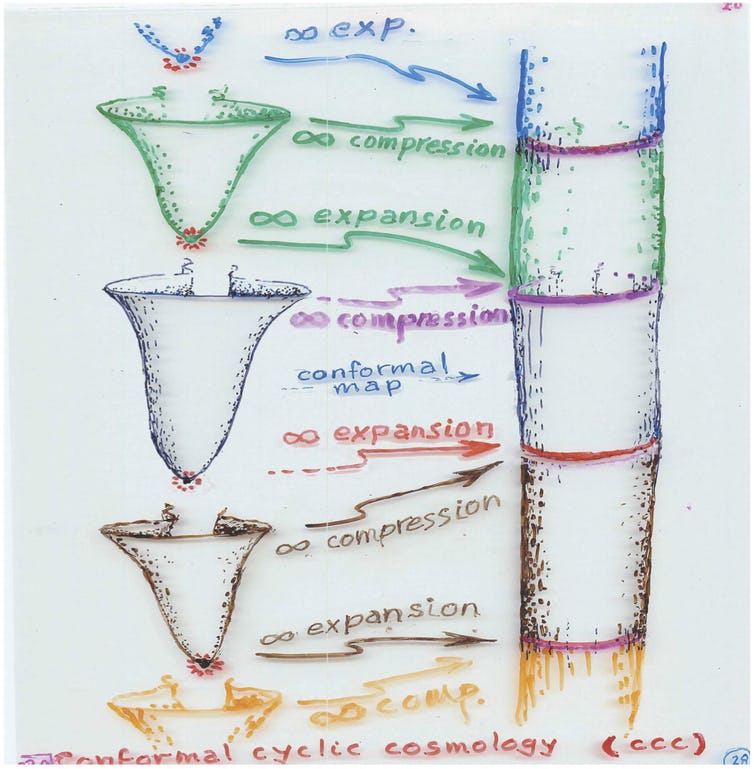 28
∞ exp.
∞ compression
∞ expansion
∞ compression
conformal
map
∞ expansion
∞ compression
∞ expansion
∞ comp.
Conformal cyclic cosmology (CCC)
28